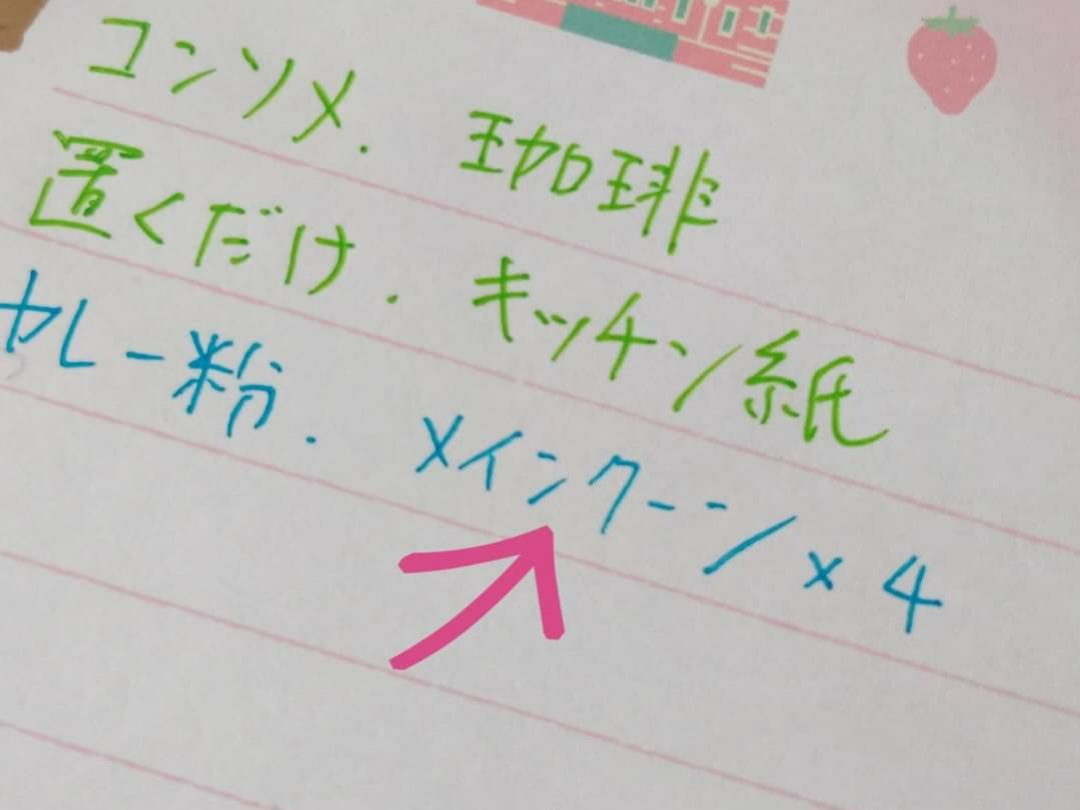 コンソメ. 珈琲
置くだけ. キッチン紙
カレー粉. メインクーン×4